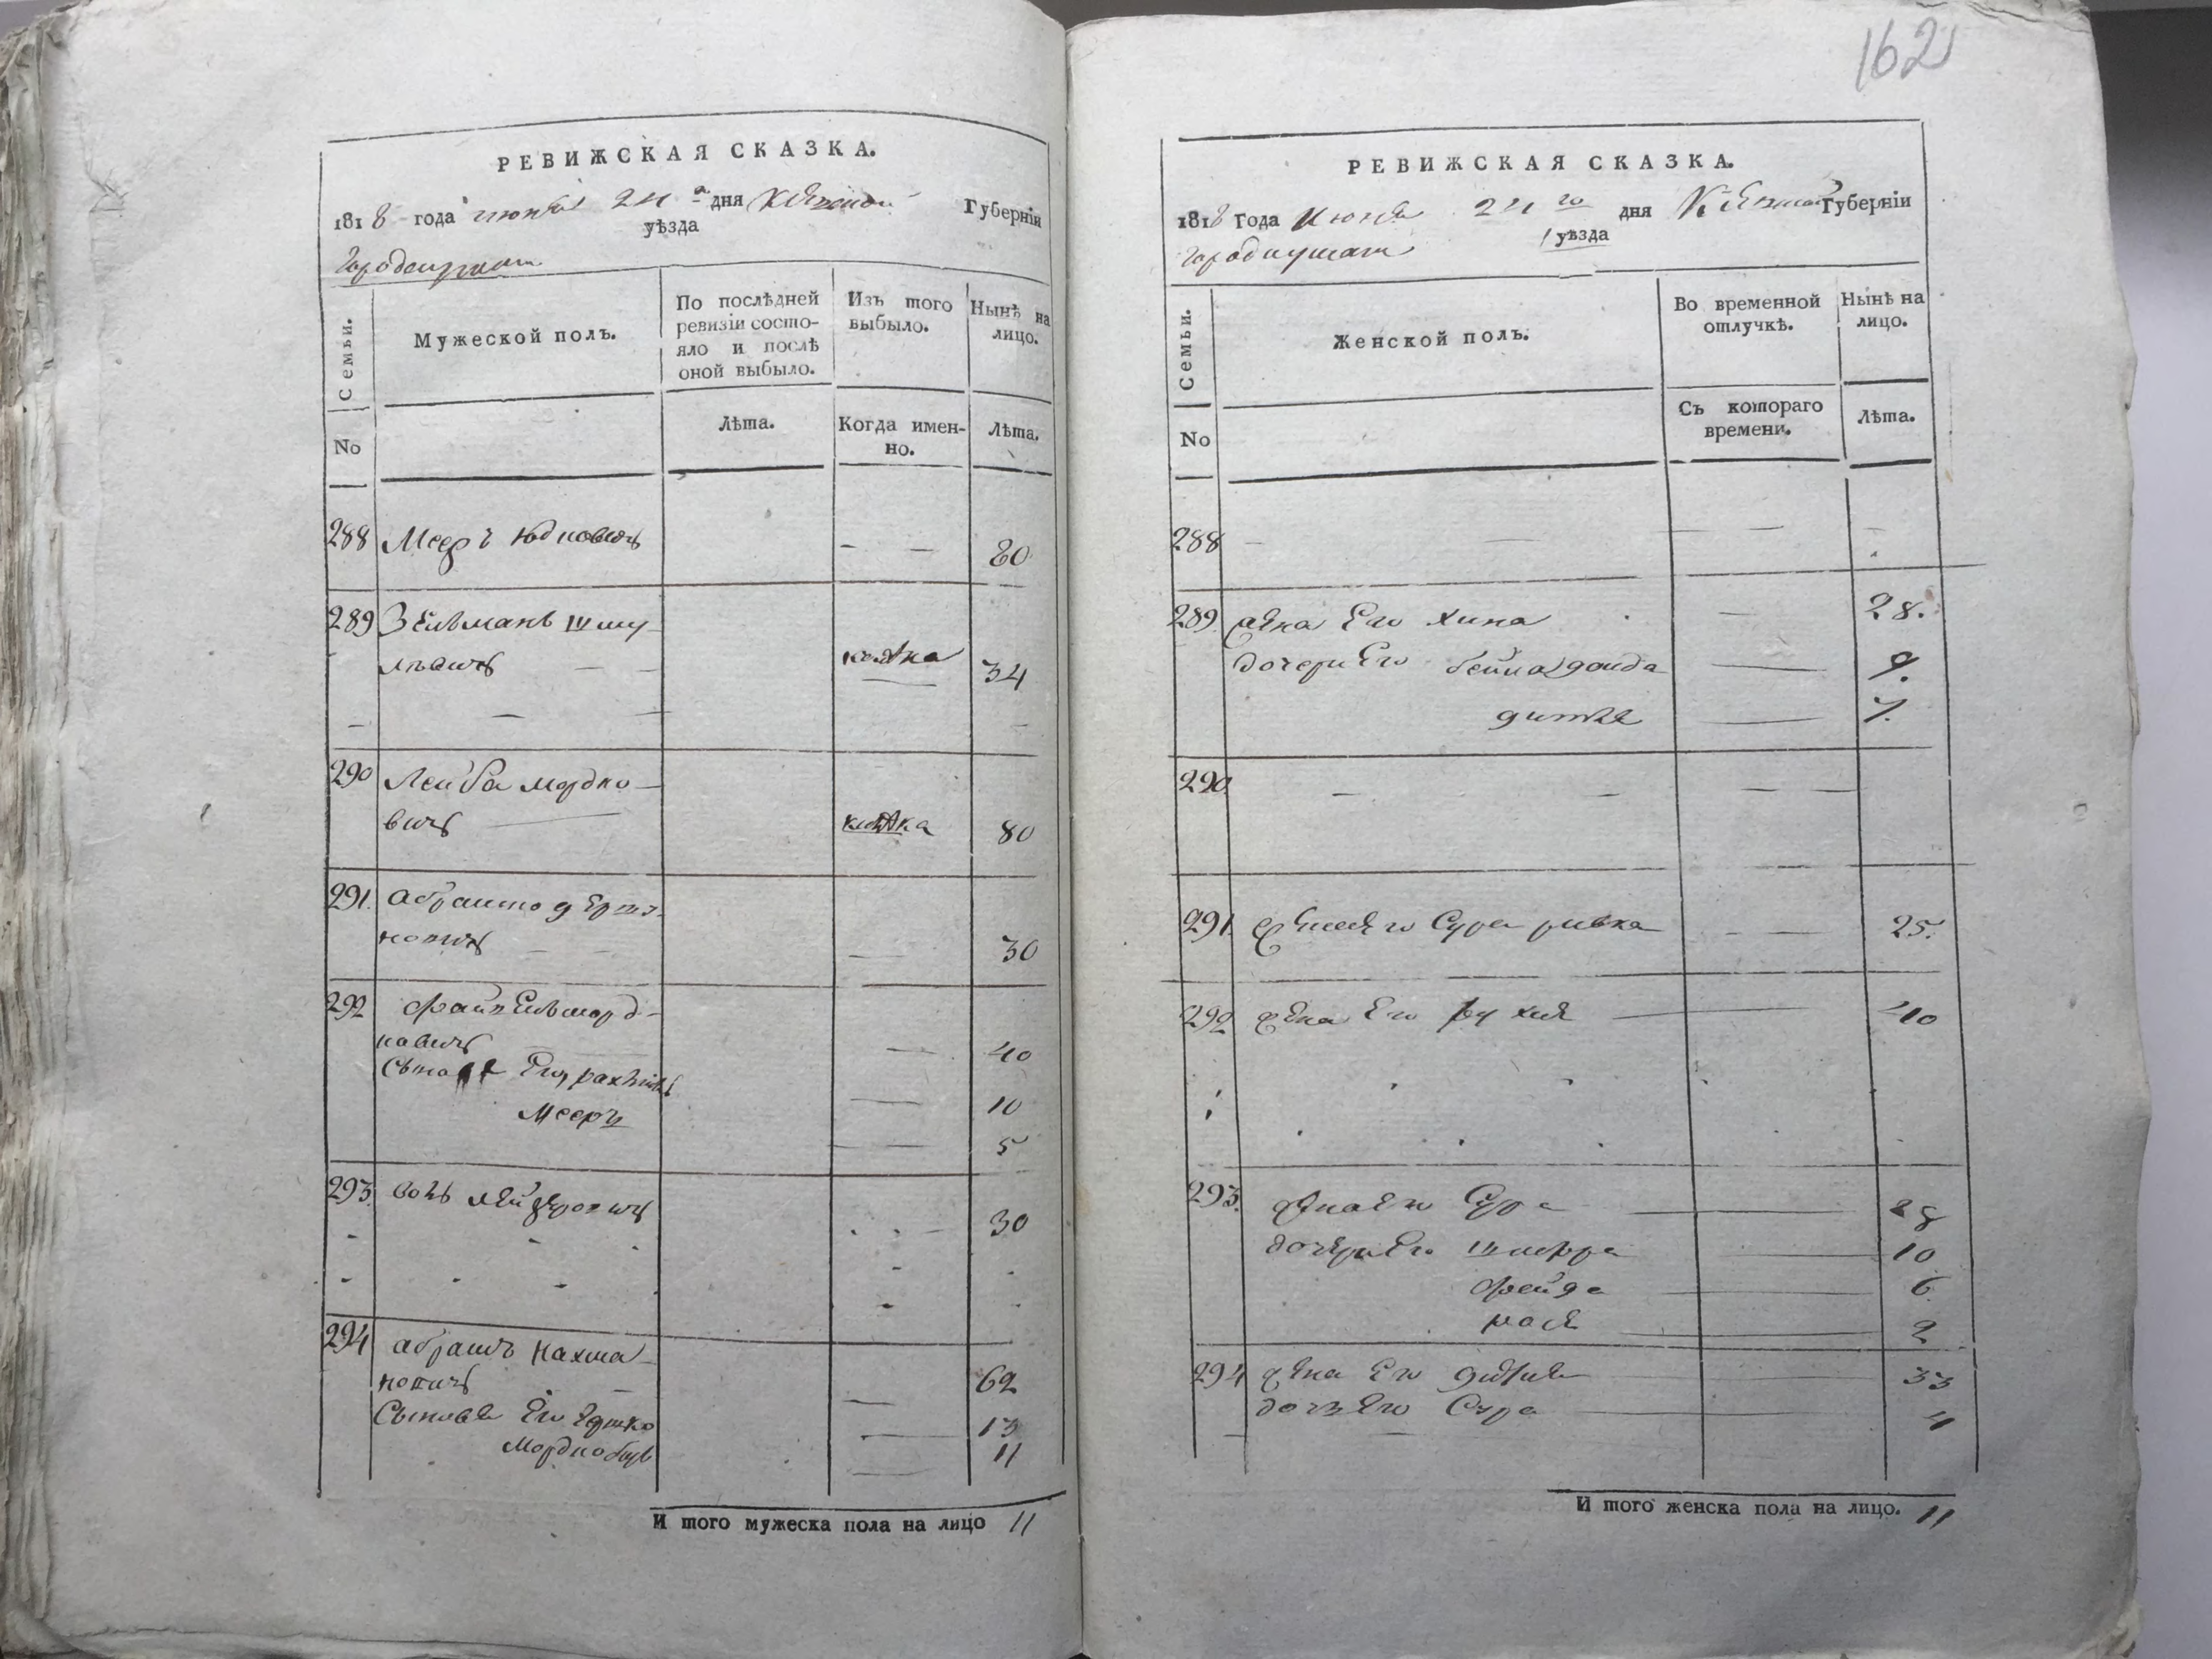 162
РЕВИЖСКАЯ СКАЗКА.
1818 года июня 24 дня Киевской Губерніи
уѣзда
Семьи.
Мужеской полъ.
По послѣдней
ревизіи состо-
яло и послѣ
оной выбыло.
Изъ того
выбыло.
Нынѣ на
лицо.
No
Лѣта.
Когда имен-
но.
Лѣта.
288 Мееръ Юдковичъ — — 80
289 Зельманъ Шму-
лѣвичъ — — 34
290 Лейба Мордко-
вичъ 80
291.
новичъ — — 30
292
ковичъ — 40
Его — 10
Мееръ — 5
293. 30
294 Абрамъ Нахма-
новичъ — 62
Сыновья Его — 13
Мордко — 11
И того мужеска пола на лицо 11
РЕВИЖСКАЯ СКАЗКА.
1818 Года Июня 24 го дня Киевской Губерніи
уѣзда
Семьи.
Женской полъ.
Во временной
отлучкѣ.
Нынѣ на
лицо.
No
Съ котораго
времени.
Лѣта.
288 — — — — —
289. жена Его Хина — 28.
дочери Его — 9.
— 7.
290. — — — —
291. жена Его Сура Ривка — — 25.
292 жена Его — 40
293. жена Его Сура — 28
дочери Его Шифра — 10
Фейга — 6
Рася — 2
294 жена Его — 33
дочь Его Сура — 4
И того женска пола на лицо. 11